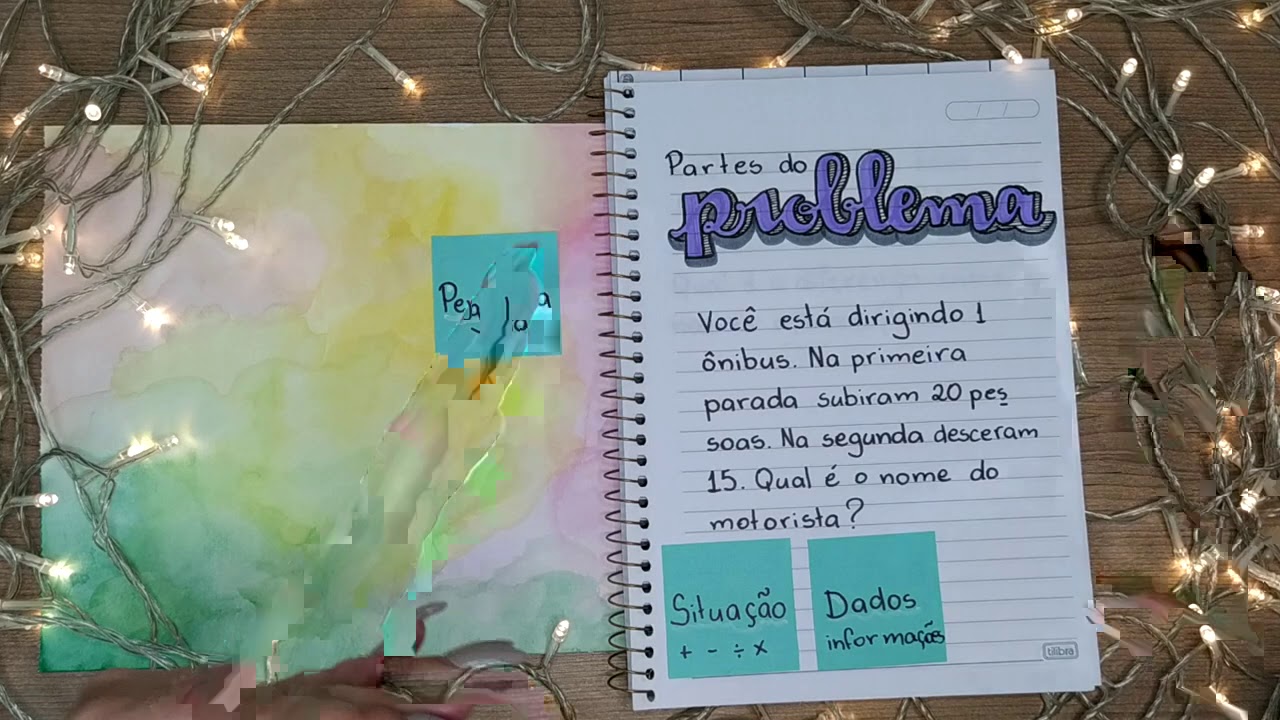 Partes do
problema
Você está dirigindo 1
ônibus. Na primeira
parada subiram 20 pes
soas. Na segunda desceram
15. Qual é o nome do
motorista?
Situação
+ - ÷ x
Dados
informações
tilibra